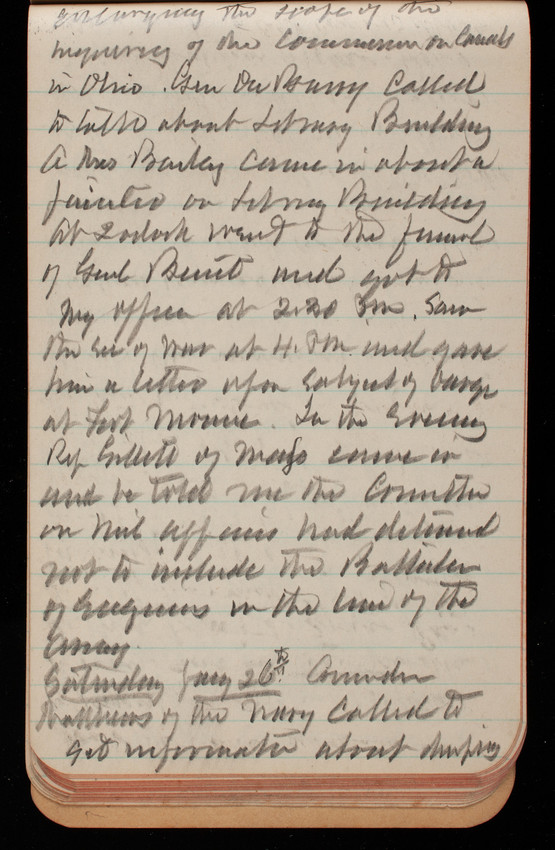 enlarging the scope of the
inquiries of the Commission on Canals
in Ohio. Gen Du Barry Called
to talk about Library Building
A Mrs Bailey came in about a
painter on Library Building
At 2 oclock went to the funeral
of Genl Benet and got to
my office at 2.20 Pm. Saw
the Sec of War at 4. P.M. and gave
him a letter upon Subject of barge
at Fort Monroe. In the Evening
Rep Gillett of Mass came in
and he told me the Committee
on Mil affairs had determined
not to include the Battalion
of Engineers in the line of the
Army.
Saturday Jany 26th Comnder
Matthews of the Navy Called to
get information about dumping